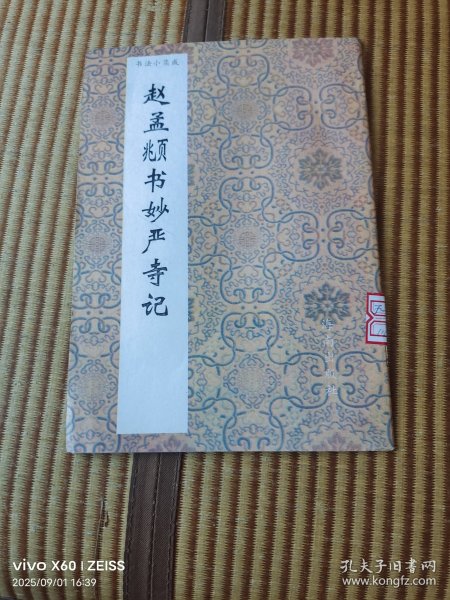 书法小集成
赵孟頫书妙严寺记
vivo X60 | ZEISS
2025/09/01 16:39
孔夫子旧书网
www.kongfz.com